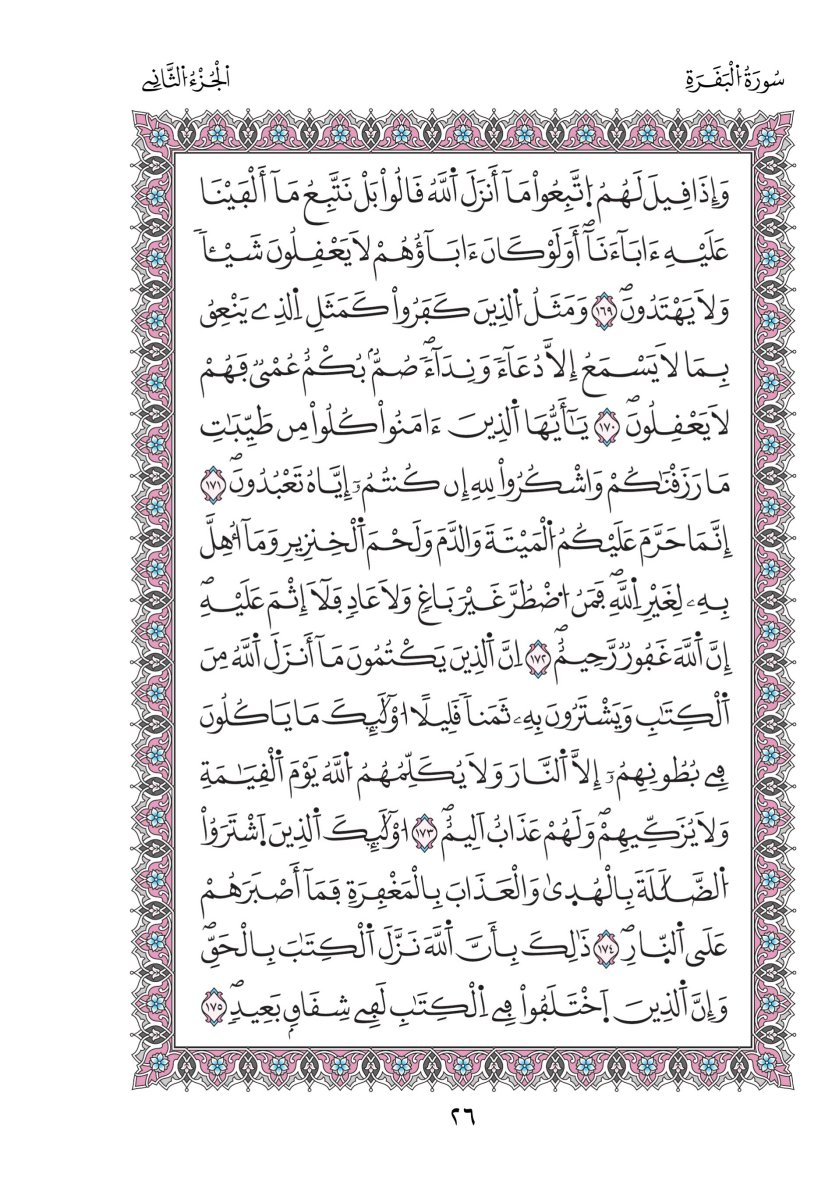 سُورَةُ الْبَقَرَةِ
الْجُزْءُ الثَّانِي
وَإِذَا قِيلَ لَهُمُ اتَّبِعُواْ مَآ أَنزَلَ اَللَّهُ قَالُواْ بَلْ نَتَّبِعُ مَآ أَلْفَيْنَا
عَلَيْهِ ءَابَآءَنَآ أَوَلَوْ كَانَ ءَابَآؤُهُمْ لاَ يَعْقِلُونَ شَيْـٔاً
وَلاَ يَهْتَدُونَ ١٦٩ وَمَثَلُ اُلذِينَ كَفَرُواْ كَمَثَلِ اِلذِے يَنْعِقُ
بِمَا لاَ يَسْمَعُ إِلاَّ دُعَآءً وَنِدَآءً صُمُّۢ بُكْمٌ عُمْيٌ فَهُمْ
لاَ يَعْقِلُونَ ١٧٠ يَٰٓأَيُّهَا اَلذِينَ ءَامَنُواْ كُلُواْ مِن طَيِّبَٰتِ
مَا رَزَقْنَٰكُمْ وَاشْكُرُواْ لِلهِ إِن كُنتُمُۥٓ إِيَّاهُ تَعْبُدُونَ ١٧١
إِنَّمَا حَرَّمَ عَلَيْكُمُ اُلْمَيْتَةَ وَالدَّمَ وَلَحْمَ اَلْخِنزِيرِ وَمَآ أُهِلَّ
بِهِۦ لِغَيْرِ اِللَّهِ فَمَنُ اُضْطُرَّ غَيْرَ بَاغٍ وَلاَ عَادٍ فَلَآ إِثْمَ عَلَيْهِ
إِنَّ اَللَّهَ غَفُورٌ رَّحِيمٌ ١٧٢ إِنَّ اَلذِينَ يَكْتُمُونَ مَآ أَنزَلَ اَللَّهُ مِنَ
اَلْكِتَٰبِ وَيَشْتَرُونَ بِهِۦ ثَمَناً قَلِيلًا أُوْلَٰٓئِكَ مَا يَاكُلُونَ
فِے بُطُونِهِمُۥٓ إِلاَّ اَلنَّارَ وَلاَ يُكَلِّمُهُمُ اُللَّهُ يَوْمَ اَلْقِيَٰمَةِ
وَلاَ يُزَكِّيهِمْ وَلَهُمْ عَذَابٌ أَلِيمٌ ١٧٣ أُوْلَٰٓئِكَ اَلذِينَ اَشْتَرَوُاْ
اُلضَّلَٰلَةَ بِالْهُدۭىٰ وَالْعَذَابَ بِالْمَغْفِرَةِ فَمَآ أَصْبَرَهُمْ
عَلَى اَلنّ۪ارِ ١٧٤ ذَٰلِكَ بِأَنَّ اَللَّهَ نَزَّلَ اَلْكِتَٰبَ بِالْحَقِّ
وَإِنَّ اَلذِينَ اَخْتَلَفُواْ فِے اِلْكِتَٰبِ لَفِے شِقَاقِۢ بَعِيدٍ ١٧٥
٢٦